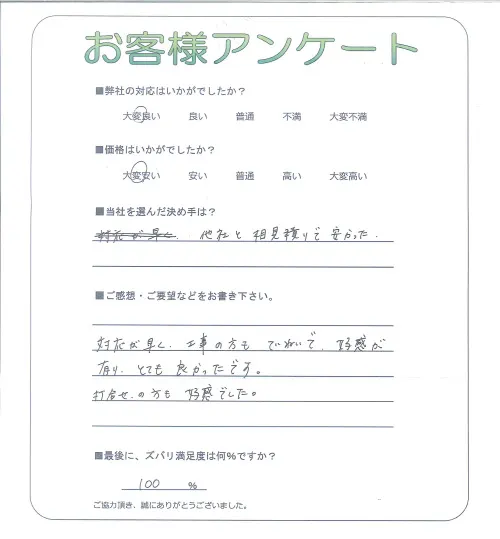 お客様アンケート
■弊社の対応はいかがでしたか？
大変良い 良い 普通 不満 大変不満
■価格はいかがでしたか？
大変安い 安い 普通 高い 大変高い
■当社を選んだ決め手は？
対応が早く、 他社と相見積りで安かった．
■ご感想・ご要望などをお書き下さい。
対応が早く、工事の方もていねいで、好感が
有り、とても良かったです。
打合せの方も好感でした。
■最後に、ズバリ満足度は何％ですか？
100 ％
ご協力頂き、誠にありがとうございました。